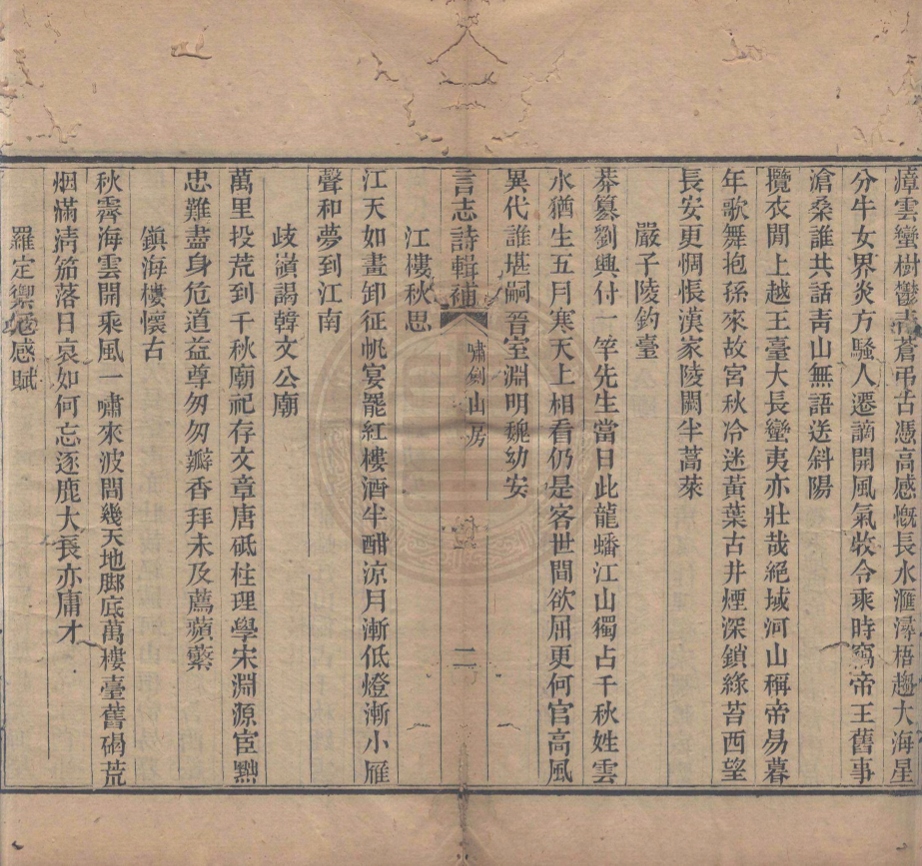 瘴雲蠻樹鬱靑蒼弔古憑高感慨長水滙潯梧趨大海星
分牛女界炎方騷人遷謫開風氣牧令乘時竊帝王舊事
滄桑誰共話靑山無語送斜陽
攬衣閒上越王臺大長蠻夷亦壯哉絕域河山稱帝易暮
年歌舞抱孫來故宮秋冷迷黃葉古井煙深鎖綠苔西望
長安更惆悵漢家陵闕半蒿萊
嚴子陵釣臺
恭纂劉興付一竿先生當日此龍蟠江山獨占千秋姓雲
水猶生五月寒天上相看仍是客世間欲屈更何官高風
異代誰堪嗣晉室淵明魏幼安
言志詩輯補
嘯劍山房
二
江樓秋思
江天如畫卸征帆宴罷紅樓酒半酣涼月漸低燈漸小雁
聲和夢到江南
歧嶺謁韓文公廟
萬里投荒到千秋廟祀存文章唐砥柱理學宋淵源宦黜
忠難盡身危道益尊匆匆瓣香拜未及薦蘋蘩
鎭海樓懷古
秋霽海雲開乘風一嘯來波間幾天地脚底萬樓臺舊碣荒
烟滿淸笳落日哀如何忘逐鹿大長亦庸才
羅定禦感賦